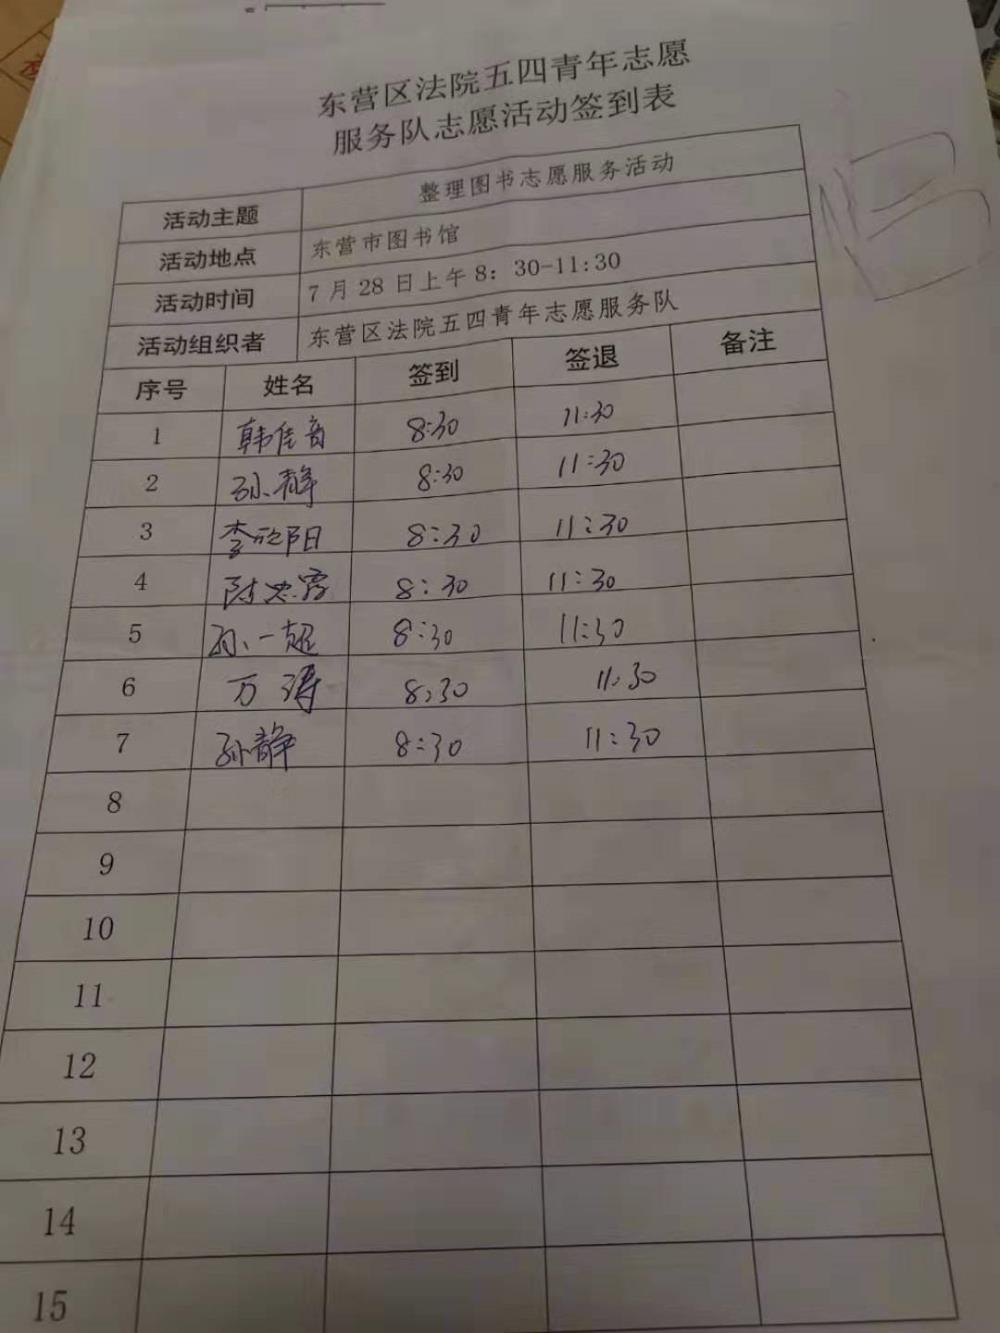 东营区法院五四青年志愿
服务队志愿活动签到表
活动主题 整理图书志愿服务活动
活动地点 东营市图书馆
活动时间 7月28日上午8：30-11:30
活动组织者 东营区法院五四青年志愿服务队
序号 姓名 签到 签退 备注
1 韩佳音 8:30 11:30
2 孙静 8:30 11:30
3 李欣阳 8:30 11:30
4 8:30 11:30
5 孙一超 8:30 11:30
6 万涛 8:30 11:30
7 孙静 8:30 11:30
8
9
10
11
12
13
14
15